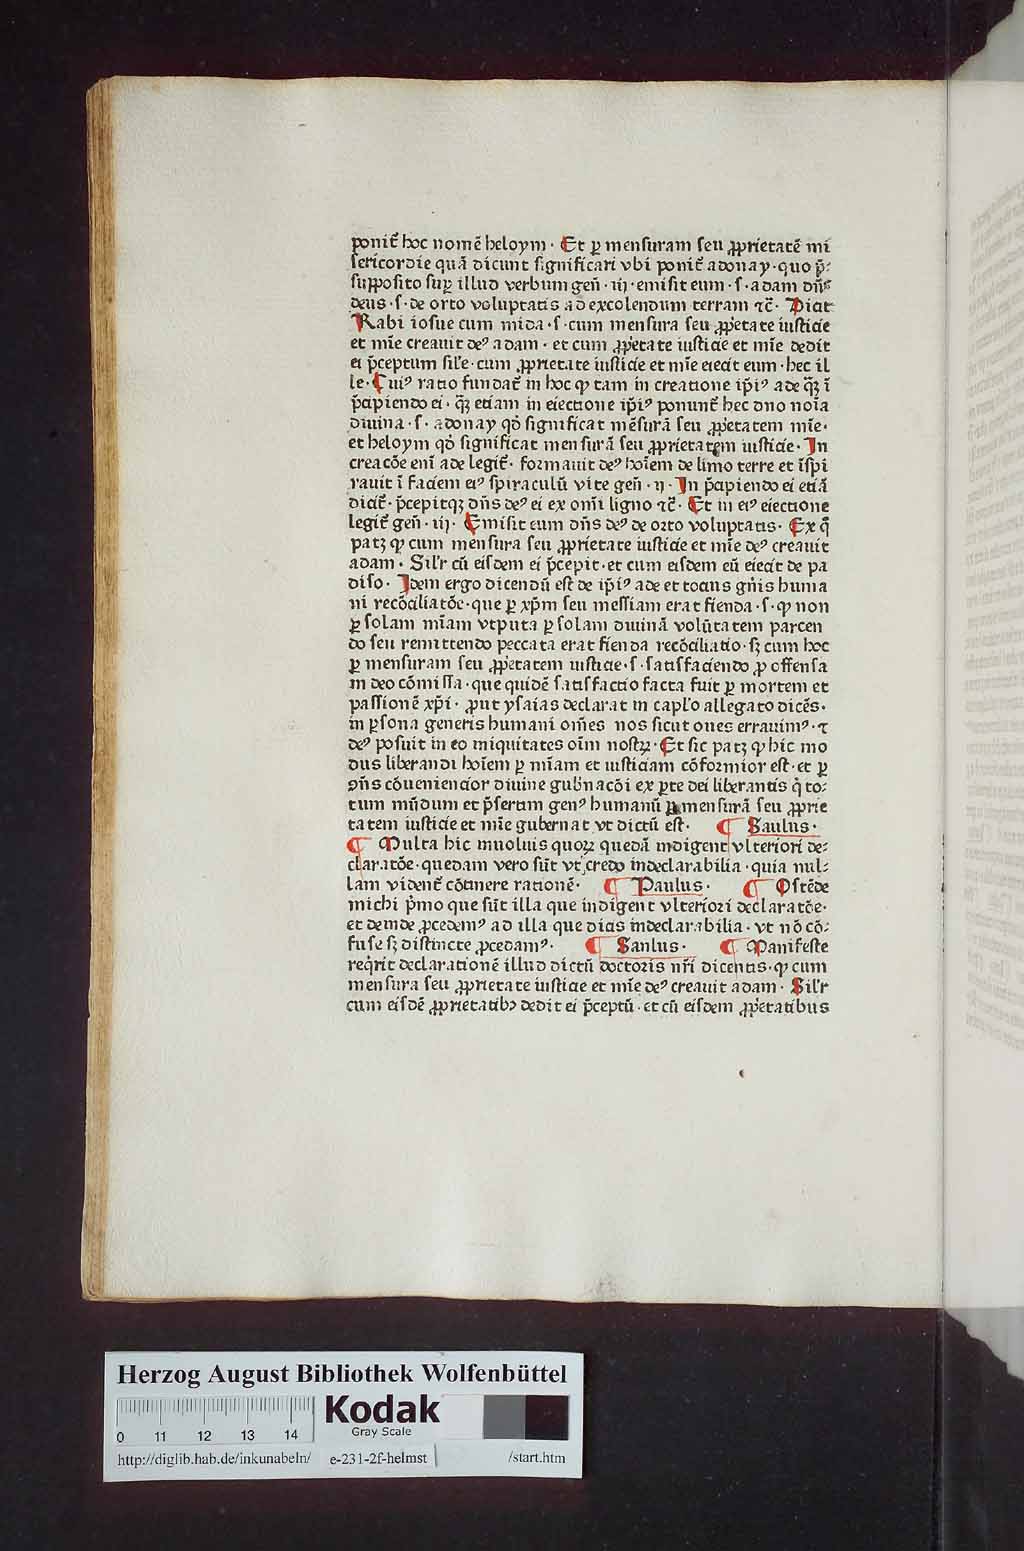 ponit᷑ hoc nomē heloym · Et ꝑ mensuram seu ꝓprietatē mi
sericordie quā dicunt significari vbi ponit᷑ adonay · quo p̄-
supposito suꝑ illud verbum geñ · iij · emisit eum · s · adam dñs
deus · s · de orto voluptatis ad excolendum terram ⁊c̄ · Dicit
Rabi iosue cum mida · s · cum mensura seu ꝓp̄etate iusticie
et mīe creauit deꝰ adam · et cum ꝓp̄etate iusticie et mīe dedit
ei p̄ceptum sil̄e · cum ꝓprietate iusticie et mīe eiecit eum · hec il
le · Cuiꝰ ratio fundat᷑ in hoc ꝙ tam in creatione ip̄iꝰ ade q̄ꝫ ī
p̄cipiendo ei · q̄ꝫ etiam in eiectione ip̄iꝰ ponunt᷑ hec duo noīa
diuina · s · adonay qđ significat mēsurā seu ꝓp̄etatem mīe ·
et heloym qđ significat mensurā seu ꝓprietatem iusticie · In
creacōe enī ade legit᷑ · formauit deꝰ hoīem de limo terre et īspi
rauit ī faciem eiꝰ spiraculū vite geñ · ij · In p̄cipiendo ei etiā
dicit᷑ · p̄cepitqꝫ dñs deꝰ ei ex om̄i ligno ⁊c̄ · Et in eiꝰ eiectione
legit᷑ geñ · iij · Emisit eum dñs deꝰ de orto voluptatis · Ex q̄
patꝫ ꝙ cum mensura seu ꝓprietate iusticie et mīe deꝰ creauit
adam · Sil̄r cū eisdem ei p̄cepit · et cum eisdem eū eiecit de pa
diso · Idem ergo dicendū est de ip̄iꝰ ade et tocius gn̄is huma
ni recōciliatōe · que ꝑ xp̄m seu messiam erat fienda · s · ꝙ non
ꝑ solam mīam vtputa ꝑ solam diuinā volūtatem parcen
do seu remittendo peccata erat fienda recōciliatio · sꝫ cum hoc
ꝑ mensuram seu ꝓp̄etatem iusticie · s · satisfaciendo ꝓ offensa
in deo cōmissa · que quidē satisfactio facta fuit ꝑ mortem et
passionē xp̄i · ꝓut ysaias declarat in capl̄o allegato dicēs ·
in ꝑsona generis humani om̄es nos sicut oues errauimꝰ · ⁊
deꝰ posuit in eo iniquitates oīm nostꝝ · Et sic patꝫ ꝙ hic mo
dus liberandi hoīem ꝑ mīam et iusticiam cōformior est · et ꝑ
ꝯñs cōueniencior diuine gub̄nacōi ex ꝑte dei liberantis q̇ to-
tum mūdum et p̄sertim genꝰ humanū ꝑ mensurā seu ꝓprie
tatem iusticie et mīe gubernat vt dictū est · ¶ Saulus ·
¶ Multa hic inuoluis quoꝝ quedā indigent vlteriori de-
claratōe · quedam vero sūt vt credo indeclarabilia · quia nul-
lam vident᷑ cōtinere rationē · ¶ Paulus · ¶ Ostēde
michi p̄mo que sūt illa que indigent vlteriori declaratōe ·
et deinde ꝓcedemꝰ ad illa que dicis indeclarabilia · vt nō cō-
fuse sꝫ distincte ꝓcedamꝰ · ¶ Saulus · ¶ Manifeste
req̇rit declarationē illud dictū doctoris nr̄i dicentis · ꝙ cum
mensura seu ꝓprietate iusticie et mīe deꝰ creauit adam · Sil̄r
cum eisdē ꝓprietatibꝫ dedit ei p̄ceptū · et cū eisdem ꝓp̄etatibus
Herzog August Bibliothek Wolfenbüttel
Kodak
Gray Scale
0 11 12 13 14
http://diglib.hab.de/inkunabeln/ e-231-2f-helmst /start.htm